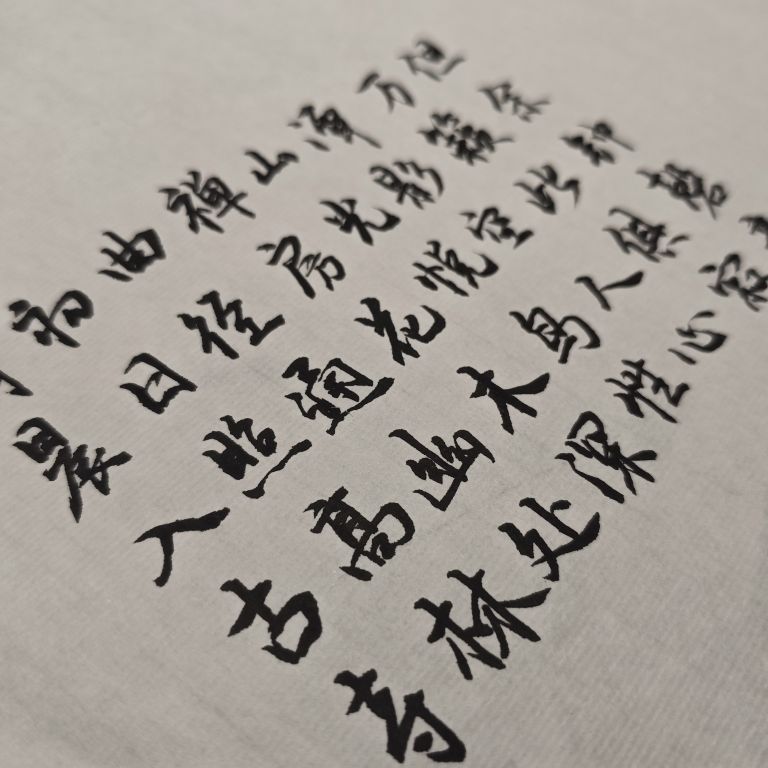 晨入古寺
初日照高林
曲径通幽处
禅房花木深
山光悦鸟性
潭影空人心
万籁此俱寂
但余钟磬